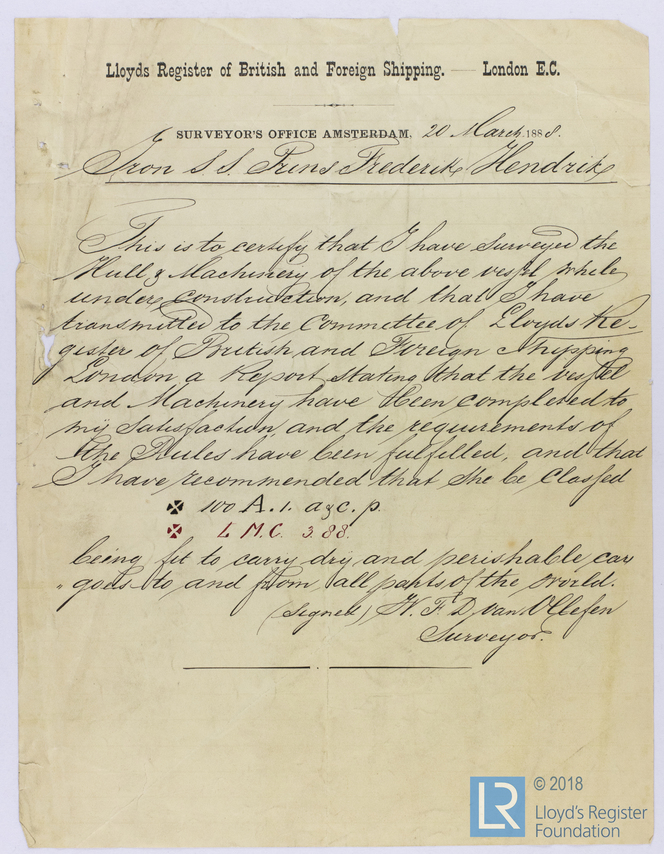 Lloyds Register of British and Foreign Shipping. — London E.C.
SURVEYOR'S OFFICE AMSTERDAM, 20 March 1888.
Iron S.S. Prins Frederik Hendrik
This is to certify that I have surveyed the
Hull & Machinery of the above vessel while
under construction, and that I have
transmitted to the Committee of Lloyds Re-
gister of British and Foreign Shipping
London a Report stating that the vessel
and Machinery have been completed to
my satisfaction, and the requirements of
the Rules have been fulfilled, and that
I have recommended that she be classed
✠ 100 A. 1. a & c. p.
✠ L M.C. 3.88.
being fit to carry dry and perishable car
„ goes to and from all parts of the world.
(signed) H. F. D. van Ollefen
Surveyor.
LR
© 2018
Lloyd's Register
Foundation